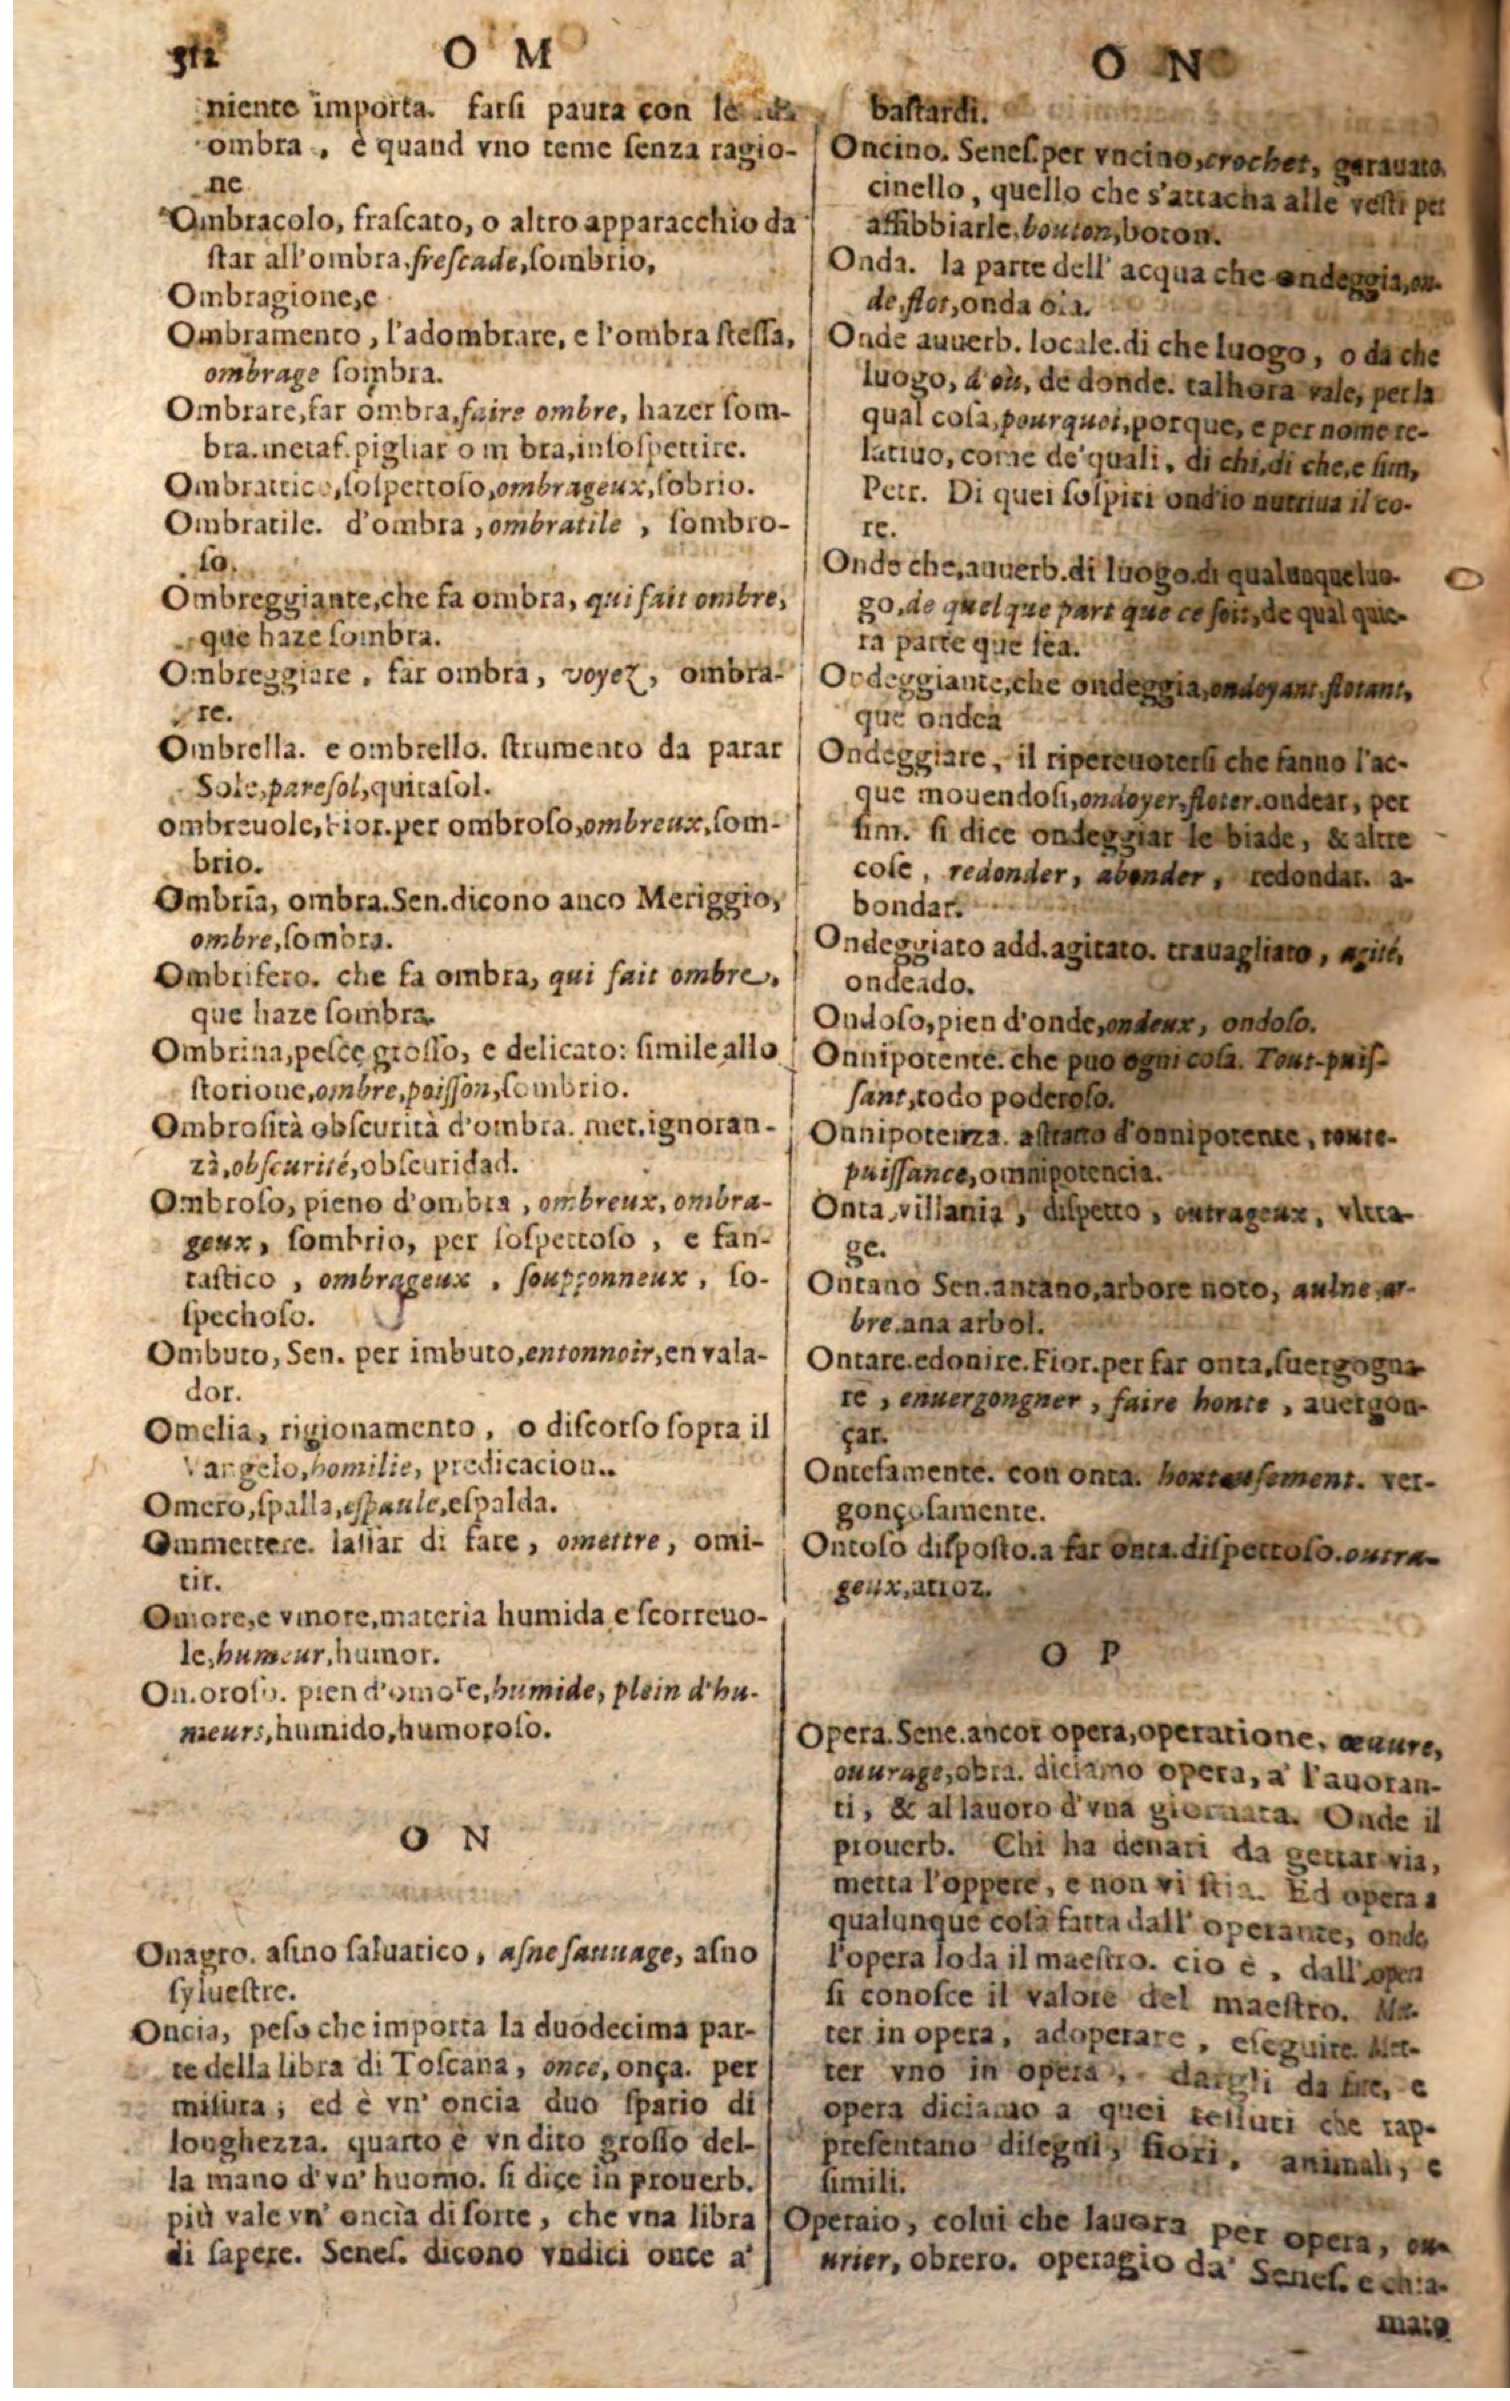 312 O M
niente importa. farſi paura con le
ombra, è quand vno teme ſenza ragio-
ne
Ombracolo, fraſcato, o altro apparacchio da
ſtar all'ombra, freſcade, ſombrio,
Ombragione, e
Ombramento, l'adombrare, e l'ombra ſteſſa,
ombrage ſombra.
Ombrare, far ombra, faire ombre, hazer ſom-
bra. metaf. pigliar om bra, inſoſpettire.
Ombrattico, ſoſpettoſo, ombrageux, ſobrio.
Ombratile. d'ombra, ombratile, ſombro-
ſo.
Ombreggiante, che fa ombra, qui fait ombre,
que haze ſombra.
Ombreggiare, far ombra, voyez, ombra-
re.
Ombrella. e ombrello. ſtrumento da parar
Sole, pareſol, quitaſol.
ombreuole, Fior. per ombroſo, ombreux, ſom-
brio.
Ombrìa, ombra. Sen. dicono anco Meriggio,
ombre, ſombra.
Ombrifero. che fa ombra, qui fait ombre,
que haze ſombra.
Ombrina, peſce groſſo, e delicato: ſimile allo
ſtorione, ombre, poiſſon, ſombrio.
Ombroſità obſcurità d'ombra. met. ignoran-
zà, obſcurité, obſcuridad.
Ombroſo, pieno d'ombra, ombreux, ombra-
geux, ſombrio, per ſoſpettoſo, e fan-
taſtico, ombrageux, ſoupçonneux, ſo-
ſpechoſo.
Ombuto, Sen. per imbuto, entonnoir, en vala-
dor.
Omelia, rigionamento, o diſcorſo ſopra il
Vangelo, homilie, predicacion..
Omero, ſpalla, eſpaule, eſpalda.
Ommettere. laſſar di fare, omettre, omi-
tir.
Omore, e vmore, materia humida e ſcorreuo-
le, humeur, humor.
Omoroſo. pien d'omore, humide, plein d'hu-
meurs, humido, humoroſo.
O N
Onagro. aſino ſaluatico, aſne ſauuage, aſno
ſylueſtre.
Oncia, peſo che importa la duodecima par-
te della libra di Toſcana, once, onça. per
miſura; ed è vn' oncia duo ſpatio di
longhezza. quarto è vn dito groſſo del-
la mano d'vn' huomo. ſi dice in prouerb.
più vale vn' oncia di ſorte, che vna libra
di ſapere. Seneſ. dicono vndici once a'
O N
baſtardi.
Oncino. Seneſ. per vncino, crochet, garauato.
cinello, quello che s'attacha alle veſti per
affibbiarle, bouton, boton.
Onda. la parte dell' acqua che ondeggia, on-
de, flot, onda ola.
Onde auuerb. locale. di che luogo, o da che
luogo, d'où, de donde. talhora vale, per la
qual coſa, pourquoi, porque, e per nome re-
latiuo, come de' quali, di chi, di che, e ſim,
Petr. Di quei ſoſpiri ond'io nutriua il co-
re.
Onde che, auuerb. di luogo. di qualunque luo-
go, de quelque part que ce ſoit, de qual quie-
ra parte que ſea.
Ondeggiante, che ondeggia, ondoyant flotant,
que ondea
Ondeggiare, il ripercuoterſi che fanno l'ac-
que mouendoſi, ondoyer, floter. ondear, per
ſim. ſi dice ondeggiar le biade, & altre
coſe, redonder, abonder, redondar. a-
bondar.
Ondeggiato add. agitato. trauagliato, agité,
ondeado.
Ondoſo, pien d'onde, ondeux, ondoſo.
Onnipotente. che puo ogni coſa. Tout-puiſ-
ſant, todo poderoſo.
Onnipotenza. aſtratto d'onnipotente, toute-
puiſſance, omnipotencia.
Onta, villania, diſpetto, outrageux, vltra-
ge.
Ontano Sen. antano, arbore noto, aulne, ar-
bre. ana arbol.
Ontare. edonire. Fior. per far onta, ſuergogna-
re, enuergongner, faire honte, auergon-
çar.
Onteſamente. con onta. honteuſement. ver-
gonçoſamente.
Ontoſo diſpoſto. a far onta. diſpettoſo. outra-
geux, atroz.
O P
Opera. Sene. ancor opera, operatione, œuure,
ouurage, obra. diciamo opera, a' l'auoran-
ti, & al lauoro d'vna giornata. Onde il
prouerb. Chi ha denari da gettar via,
metta l'oppere, e non vi ſtia. Ed opera a
qualunque coſa fatta dall' operante, onde
l'opera loda il maeſtro. cio è, dall' opera
ſi conoſce il valore del maeſtro. Met-
ter in opera, adoperare, eſeguire. Met-
ter vno in opera, dargli da fare, e
opera diciamo a quei teſſuti che rap-
preſentano diſegni, fiori, animali, e
ſimili.
Operaio, colui che lauora per opera, ou-
urier, obrero. operagio da' Seneſ. e chia-
mato